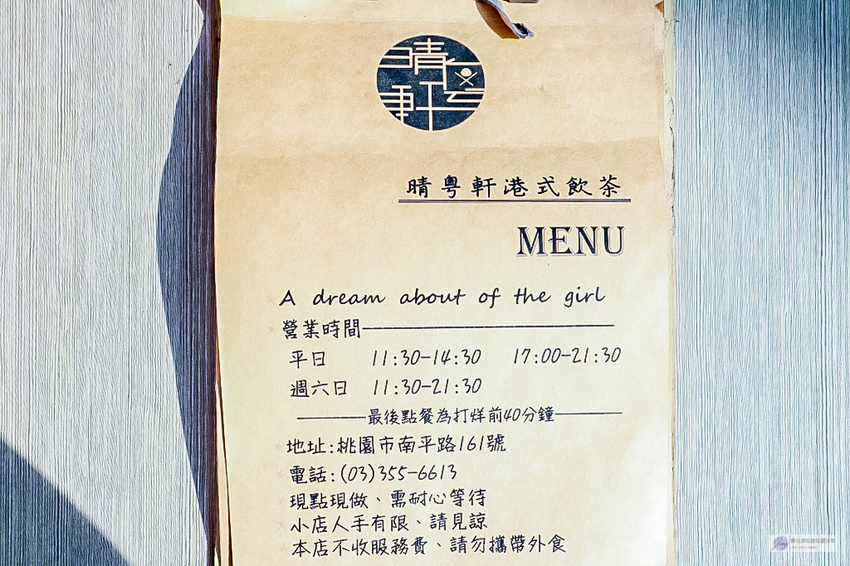 晴粵軒
晴粵軒港式飲茶
MENU
A dream about of the girl
營業時間
平日 11:30-14:30 17:00-21:30
週六日 11:30-21:30
最後點餐為打烊前40分鐘
地址:桃園市南平路161號
電話:(03)355-6613
現點現做、需耐心等待
小店人手有限、請見諒
本店不收服務費、請勿攜帶外食